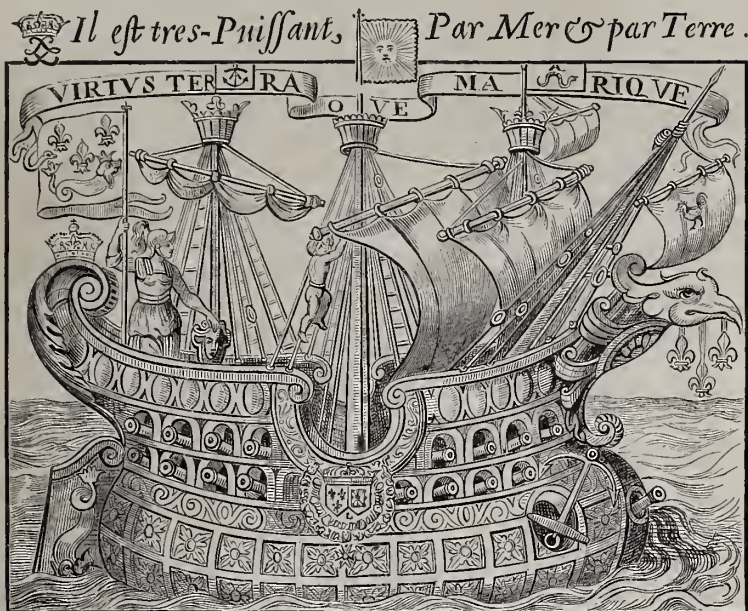 Il eſt tres-Puiſſant, Par Mer & par Terre.
VIRTVS TERRA QVE MARIQVE